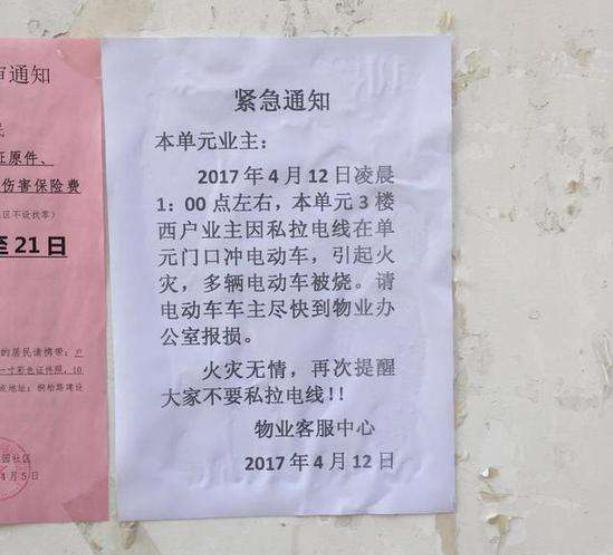 审通知
民
证原件、
伤害保险费
社区不设秋季）
至21日
的居民请携带：户
一寸彩色证件照，10
点地址：桐柏路建设
园社区
4月5日
紧急通知
本单元业主：
2017年4月12日凌晨
1：00点左右，本单元3楼
西户业主因私拉电线在单
元门口冲电动车，引起火
灾，多辆电动车被烧。请
电动车车主尽快到物业办
公室报损。
火灾无情，再次提醒
大家不要私拉电线!!
物业客服中心
2017年4月12日